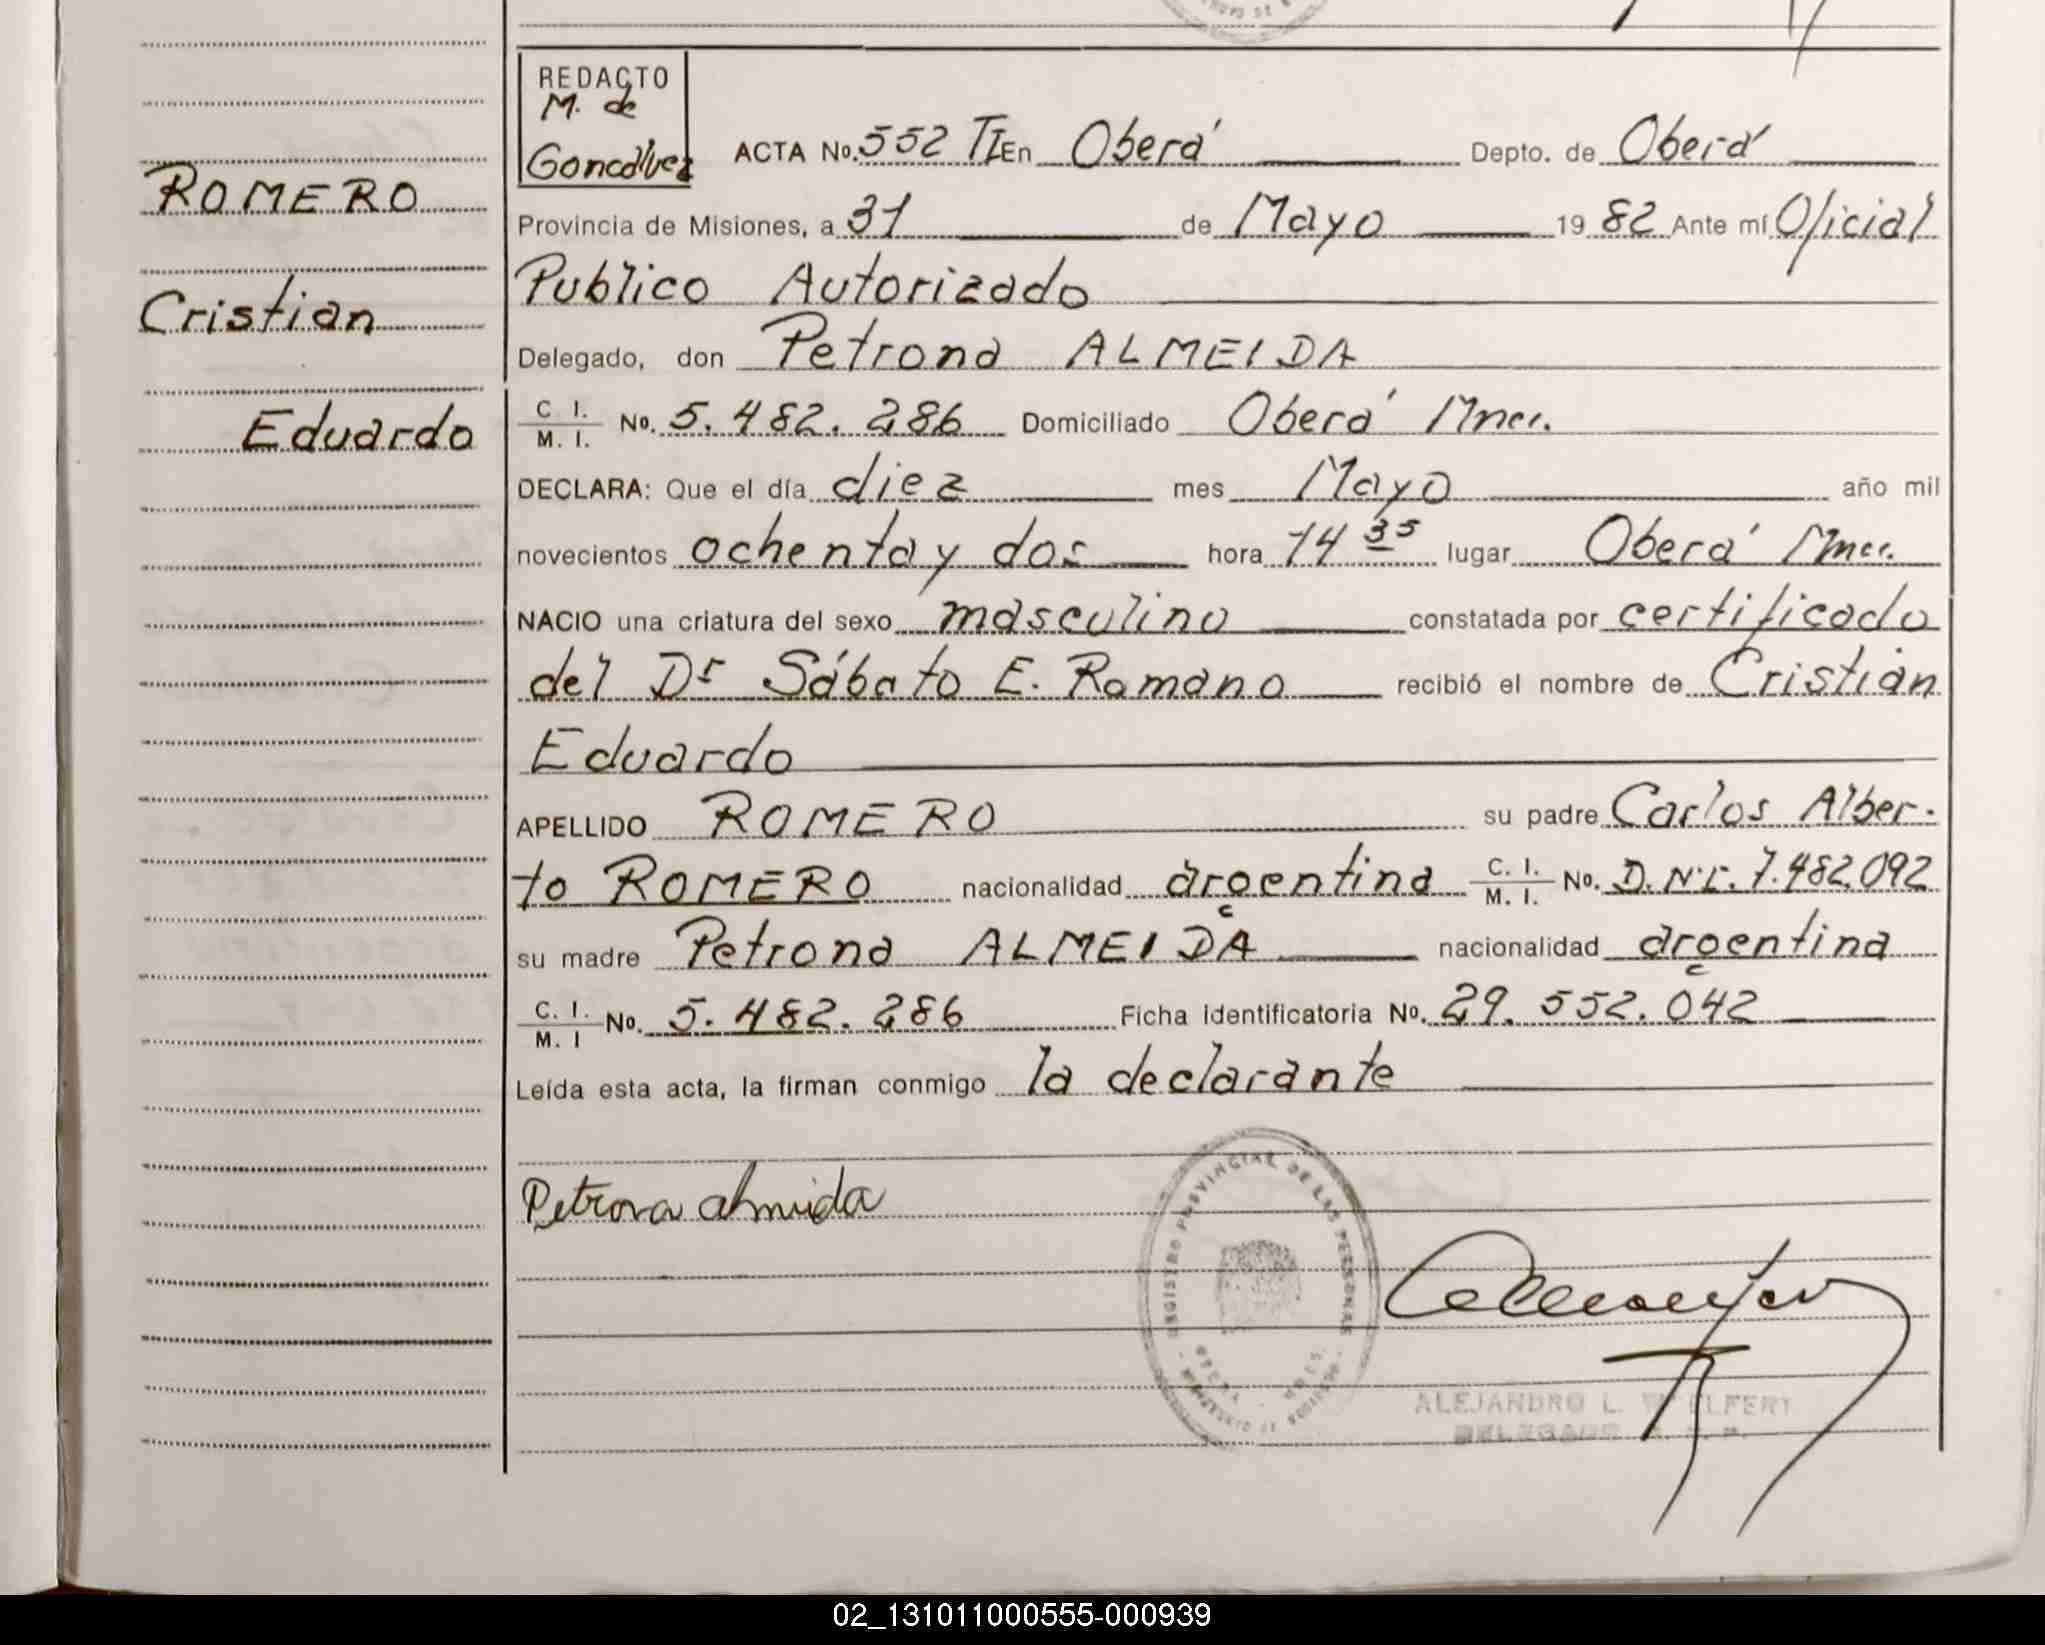 REDACTO
M. de
Goncálvez
ACTA No. 552 TI En Oberá Depto. de Oberá
ROMERO
Provincia de Misiones, a 31 de Mayo 1982 Ante mí Oficial
Publico Autorizado
Cristian
Delegado, don Petrona ALMEIDA
Eduardo
C I. M. I. No. 5.482.286 Domiciliado Oberá Mnes.
DECLARA: Que el día diez mes Mayo año mil
novecientos ochenta y dos hora 14 35 lugar Oberá Mnes.
NACIO una criatura del sexo masculino constatada por certificado
del Dr Sábato E. Romano recibió el nombre de Cristian
Eduardo
APELLIDO ROMERO su padre Carlos Alber-
to ROMERO nacionalidad argentina C. I. M. I. No. D.N.I. 7.482.092
su madre Petrona ALMEIDA nacionalidad argentina
C. I. M. I No. 5.482.286 Ficha identificatoria No. 29.552.042
Leída esta acta, la firman conmigo la declarante
Petrona almeida
REGISTRO PROVINCIAL DE LAS PERSONAS
ALEJANDRO L.
DELEGADO
02_131011000555-000939